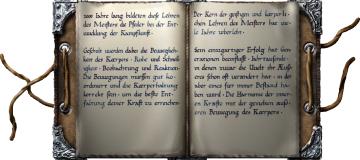 2000 Jahre lang bildeten diese Lehren
des Meisters die Pfeiler bei der Ent-
wicklung der Kampfkunst.
Gelehrt wurden dabei die Beweglich-
keit des Körpers - Ruhe und Schnel-
ligkeit - Beobachtung und Reaktion.
Die Bewegungen mussten gut ko-
ordiniert und die Körperhaltung
korrekt sein - um die beste Ent-
faltung deiner Kraft zu erreichen.
Der Kern der geistigen und körperli-
chen Lehren des Meisters hat
viele Jahre überlebt.
Sein einzigartiger Erfolg hat Gen-
erationen beeinflusst - Jahrtausende -
in denen zwar die Welt ihr Äuße-
res schon oft verändert hat - in de-
nen aber eins fast immer Bestand ha-
ben wird - Die Harmonie der inner-
en Kräfte mit der geradlinig
Bewegung des Körpers -